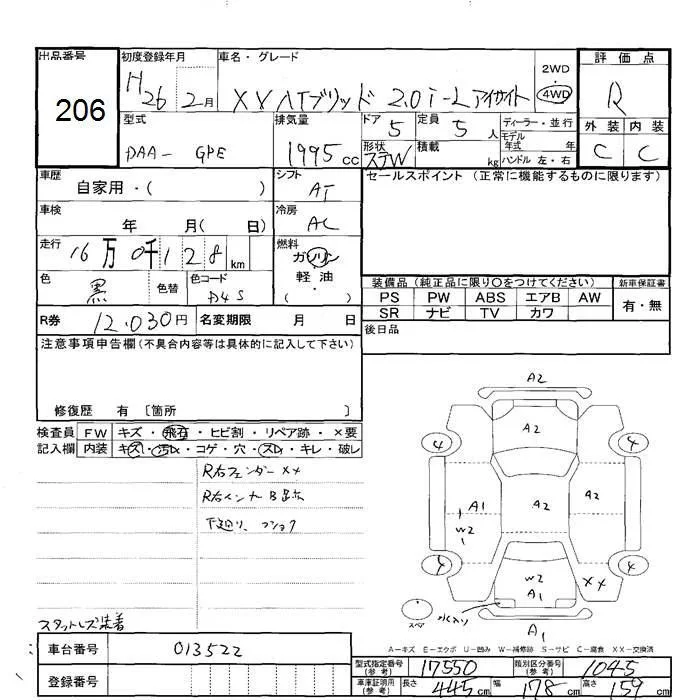 出品番号
206
初度登録年月
H26 2月
車名・グレード
XV ハイブリッド 2.0i-L アイサイト
2WD
4WD
評価点
R
外装 内装
C C
型式
DAA- GPE
排気量
1995 cc
ドア 5
定員 5 人
ディーラー・並行
モデル年式 年
形状 STW
積載 kg
ハンドル 左・右
車歴
自家用・( )
シフト
AT
車検
年 月( 日)
冷房
AC
走行
16万0千128 km
燃料
ガソリン
軽油
( )
色
黒
色替
色コード
D4S
R券
12,030円
名変期限 月 日
セールスポイント (正常に機能するものに限ります)
装備品 (純正品に限り○をつけてください)
新車保証書
PS PW ABS エアB AW
SR ナビ TV カワ
有・無
後日品
注意事項申告欄 (不具合内容等は具体的に記入して下さい)
修復歴 有 〔箇所 〕
検査員 FW キズ・飛石・ヒビ割・リペア跡・×要
記入欄 内装 キズ・汚れ・コゲ・穴・スレ・キレ・破れ
R右フェンダー XX
R右インナー B
下廻り
スタットレス装着
A2
A2
4
4
A1
W2
A2
A2
4
4
W2
A1
XX
スペア
A1
A-キズ E-エクボ U-凹み W-補修跡 S-サビ C-腐食 XX-交換済
車台番号
013522
登録番号
型式指定番号 (参考)
17550
類別区分番号 (参考)
1045
車庫証明用 (参考)
長さ 445 cm
幅 178 cm
高さ 159 cm